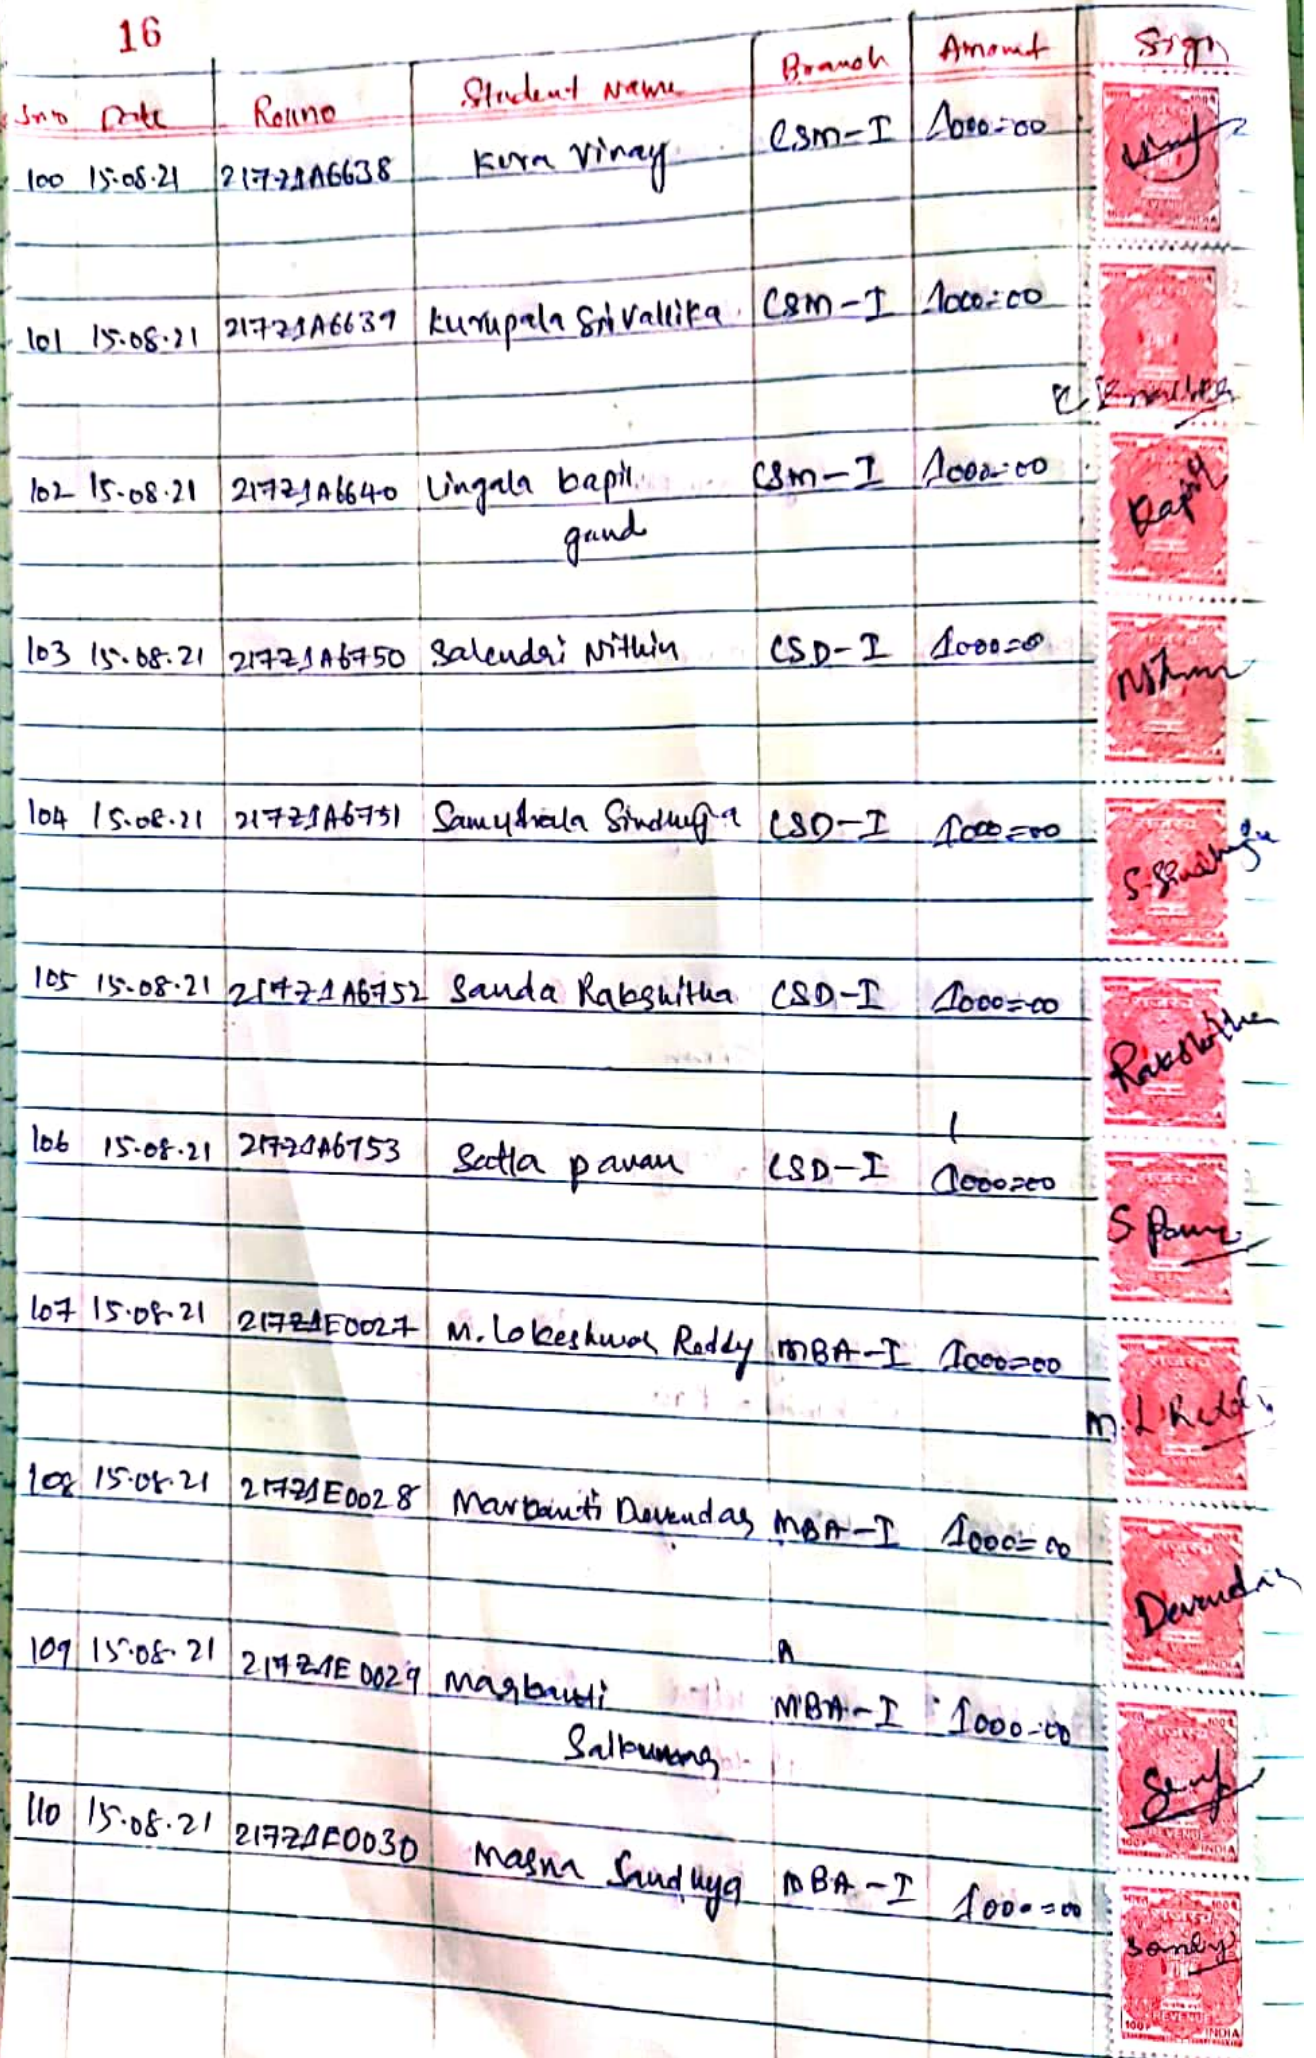 16
Sno Date Rollno Student Name Branch Amount Sign
100 15.08.21 217Z1A6638 Kura Vinay CSM-I 1000=00
101 15.08.21 217Z1A6639 Kurupala Srivallika CSM-I 1000=00
102 15.08.21 217Z1A6640 Lingala kapil CSM-I 1000=00 Kapil
goud
103 15.08.21 217Z1A6750 Salendri Nithin CSD-I 1000=0 Nithin
104 15.08.21 217Z1A6751 Samudrala Sindhuja CSD-I 1000=00 S.Sindhuja
105 15.08.21 217Z1A6752 Sanda Rakshitha CSD-I 1000=00 Rakshitha
106 15.08.21 217Z1A6753 Satla pavan CSD-I 1000=00 S Pavan
107 15.08.21 217Z1E0027 M. Lokeshwar Reddy MBA-I 1000=00 M.L.Reddy
108 15.08.21 217Z1E0028 Markanti Devendas MBA-I 1000=00 Devendas
109 15.08.21 217Z1E0029 Markanti MBA-I 1000-00
110 15.08.21 217Z1E0030 Masna Sandhya MBA-I 1000=00 Sandy
REVENUE
INDIA